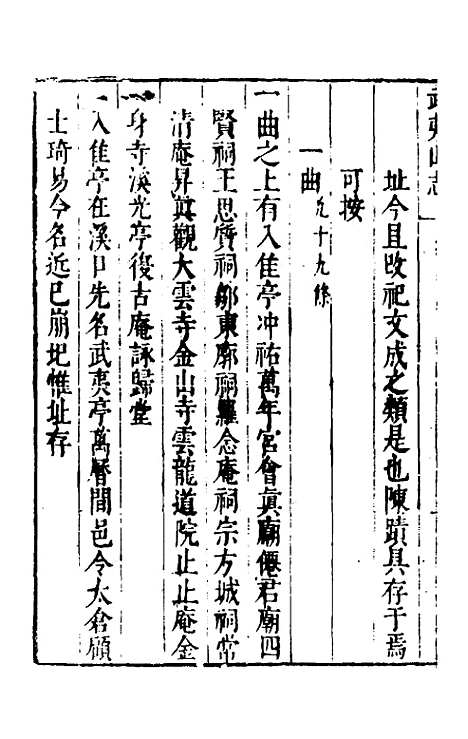 武夷山志
址今且改祀文成之類是也陳蹟具存于焉
可按
一曲凡十九條
一曲之上有入佳亭冲祐萬年宮會眞廟僊君廟四
賢祠王思質祠鄒東廓祠羅念庵祠宗方城祠常
清庵昇眞觀大雲寺金山寺雲龍道院止止庵金
身寺溪光亭復古庵詠歸堂
一入佳亭在溪口先名武夷亭萬曆間邑令太倉顧
士琦易今名近已崩圮惟址存